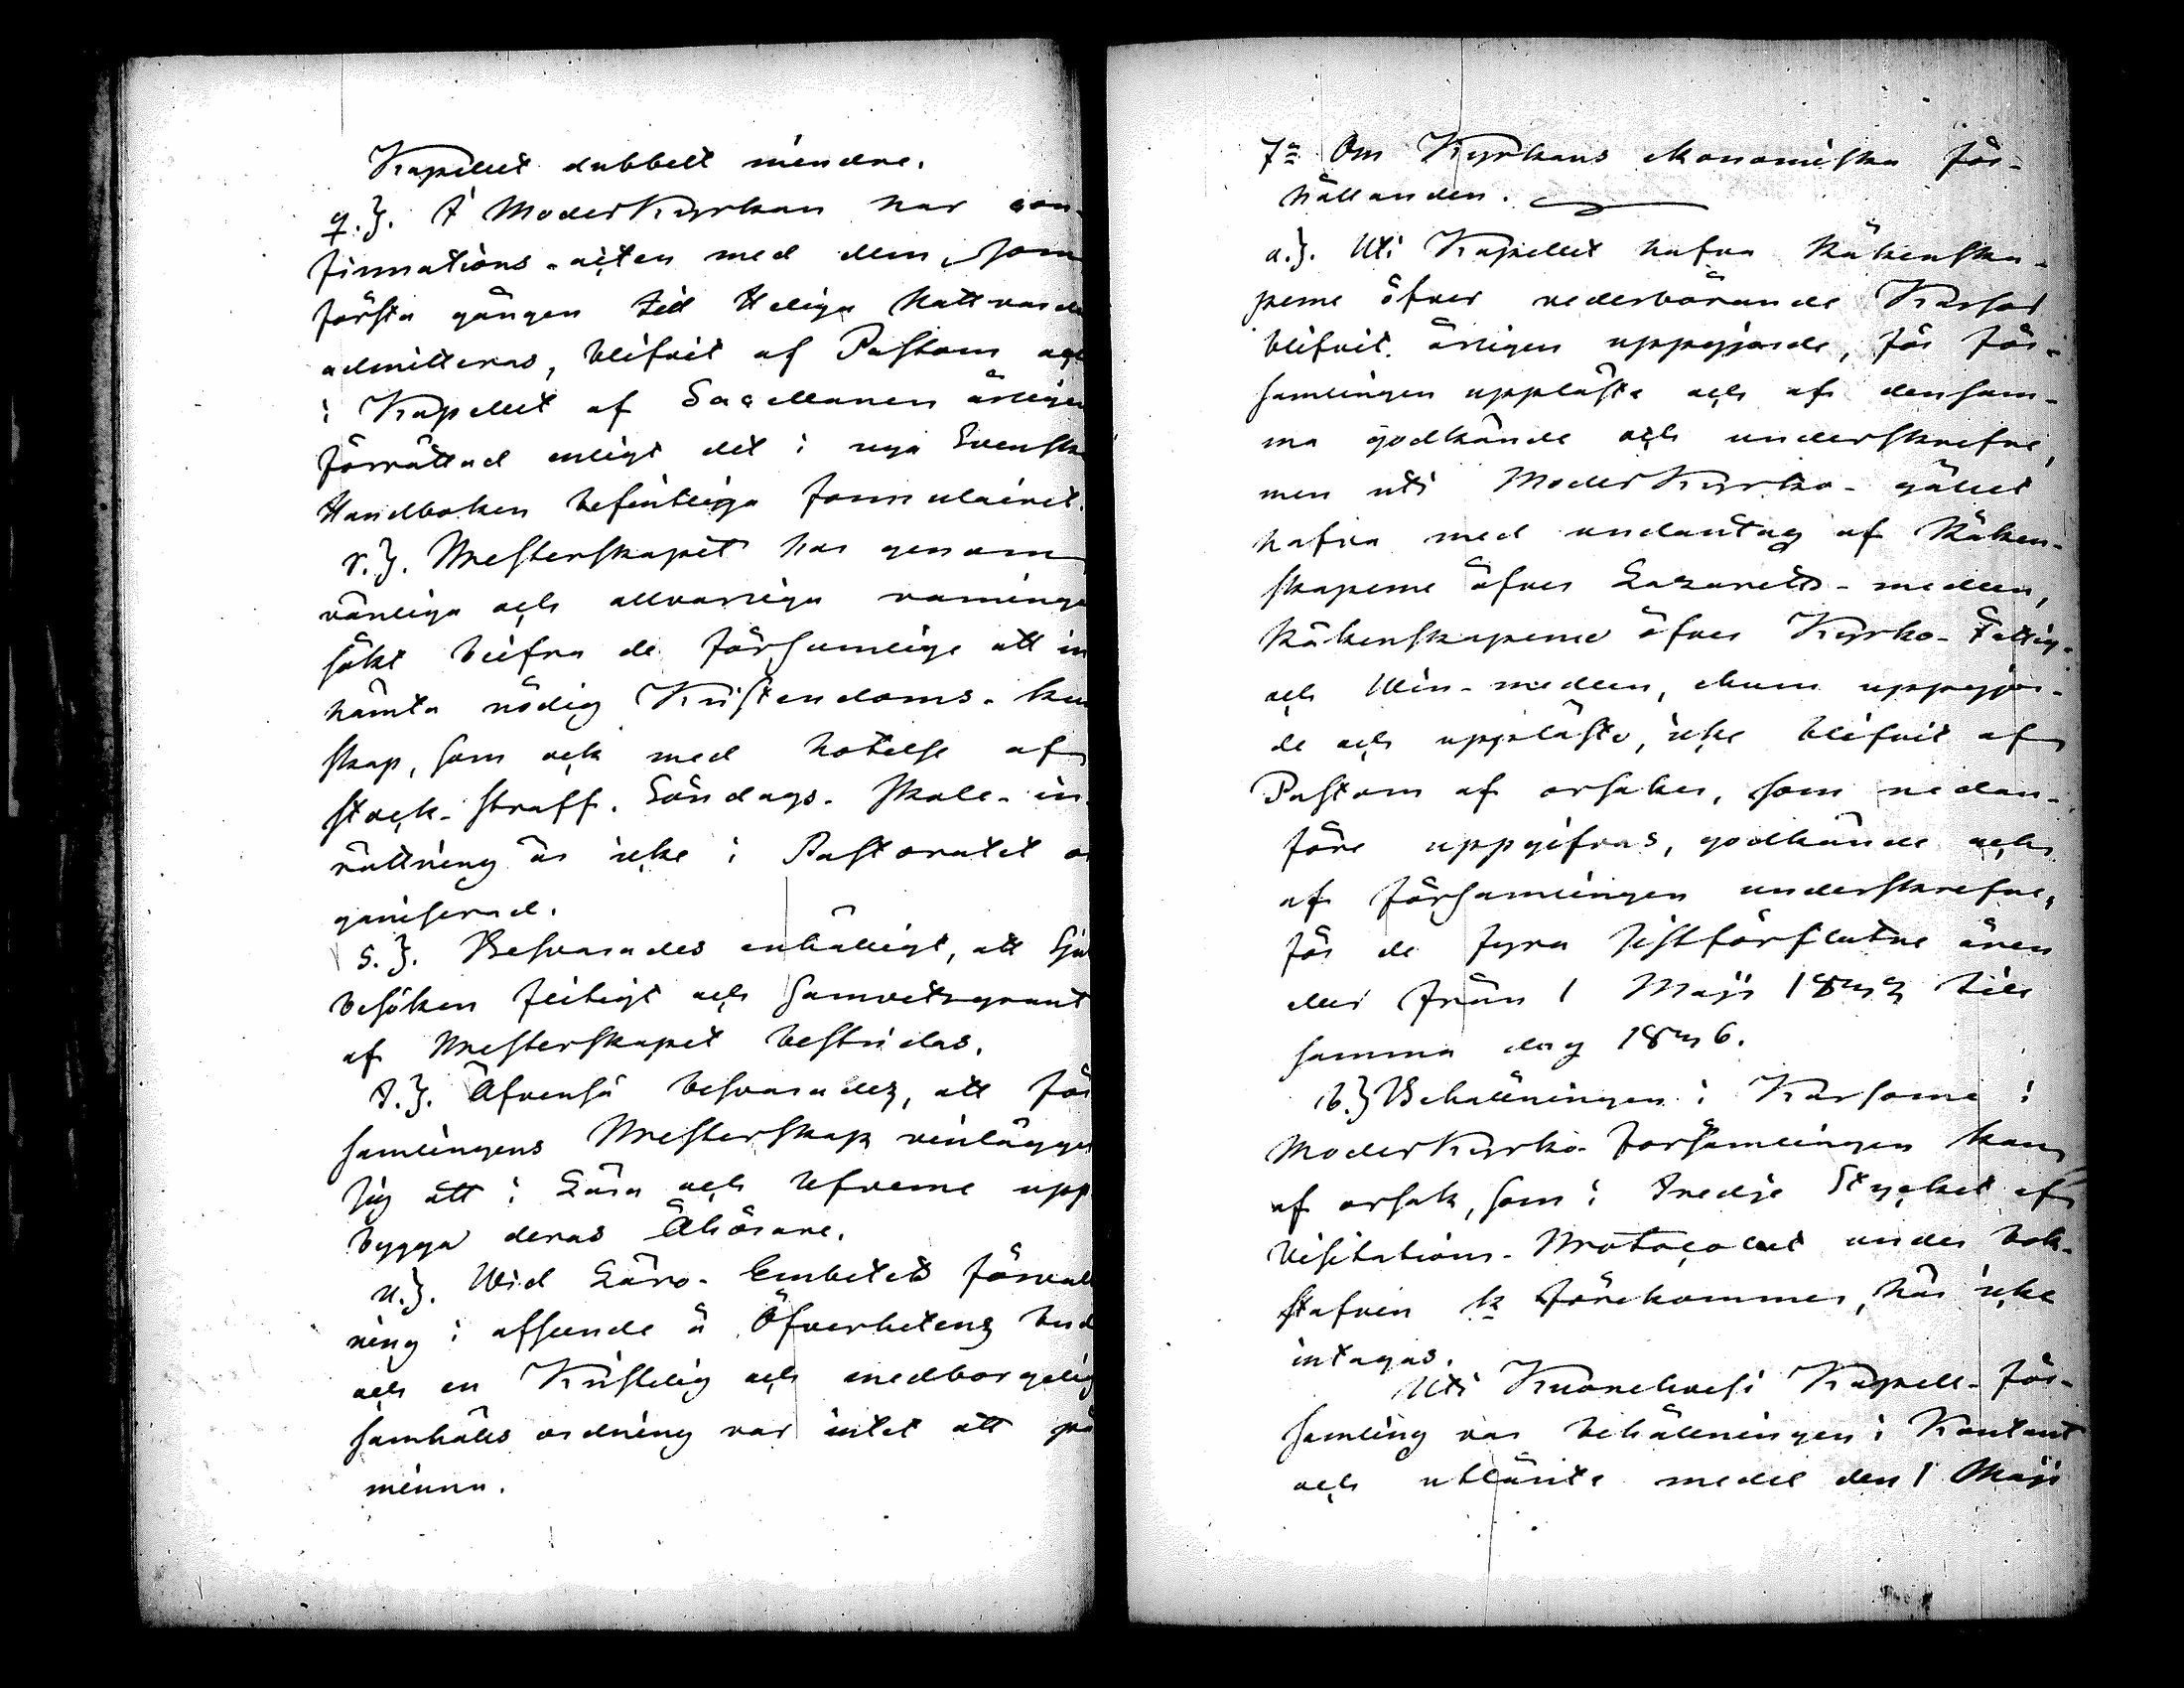 Kapellet dubbelt mindre.
q.}. I ModerKyrkan har con-
firmations-acten med dem, som
första gången till Heliga Nattvarde
admitteras, blifvit af Pastorn och
i Kapellet af Sacellanen årligen
förrättad enligt det i nya Svenska
Handboken befintliga formulairet.
r.}. Presterskapet har genom
vänliga och allvarliga varninga
sökt blifva de försumlige att in
hämta nödig Kristendoms-kun
skap, som ock med hotelse af
stock-straff. Söndags-Skole-in-
rättning är icke i Pastoratet or
ganiserad.
s.}. Besvarades enhälligt, att Sju
besöken flitigt och samvetsgrant
af Presterskapet bestridas.
t.}. Äfvenså besvarades, att för
samlingens Presterskap vinlägger
sig att i Lära och lefverne upp
bygga deras Åhörare.
u.}. Wid Läro-Embetets förvalt
ning i afseende å Öfverhetens bud
och en Kristelig och medborgelig
samhälls ordning var intet att på
minna.
7=. Om Kyrkans ekonomiska för-
hållanden.
a.}. Uti Kapellet hafva Räkenska-
perne öfver vederbörande Kassor
blifvit årligen uppgjorde, för för-
samlingen uppläste och af densam-
ma godkände och underskrefne,
men uti ModerKyrko-gället
hafva med undantag af Räken-
skaperne öfver Lazaretts-medlen,
Räkenskaperne öfver Kyrko- Fattig-
och Win-medlen, ehuru uppgjor-
de och uppläste, icke blifvit af
Pastorn af orsaker, som nedan-
före uppgifvas, godkände och
af församlingen underskrefne,
för de fyra sistförflutne åren
eller från 1 Maji 1842 till
samma dag 1846.
b.} Behållningen i Kassorne i
ModerKyrko-församlingen kan
af orsak, som i tredje Stycket af
Visitations-Protocollet under bok-
stafven k förekommer, här icke
intagas.
Uti Kuorehvesi Kapell-för-
samling var behållningen i Kontant
och utlånte medel den 1 Maji